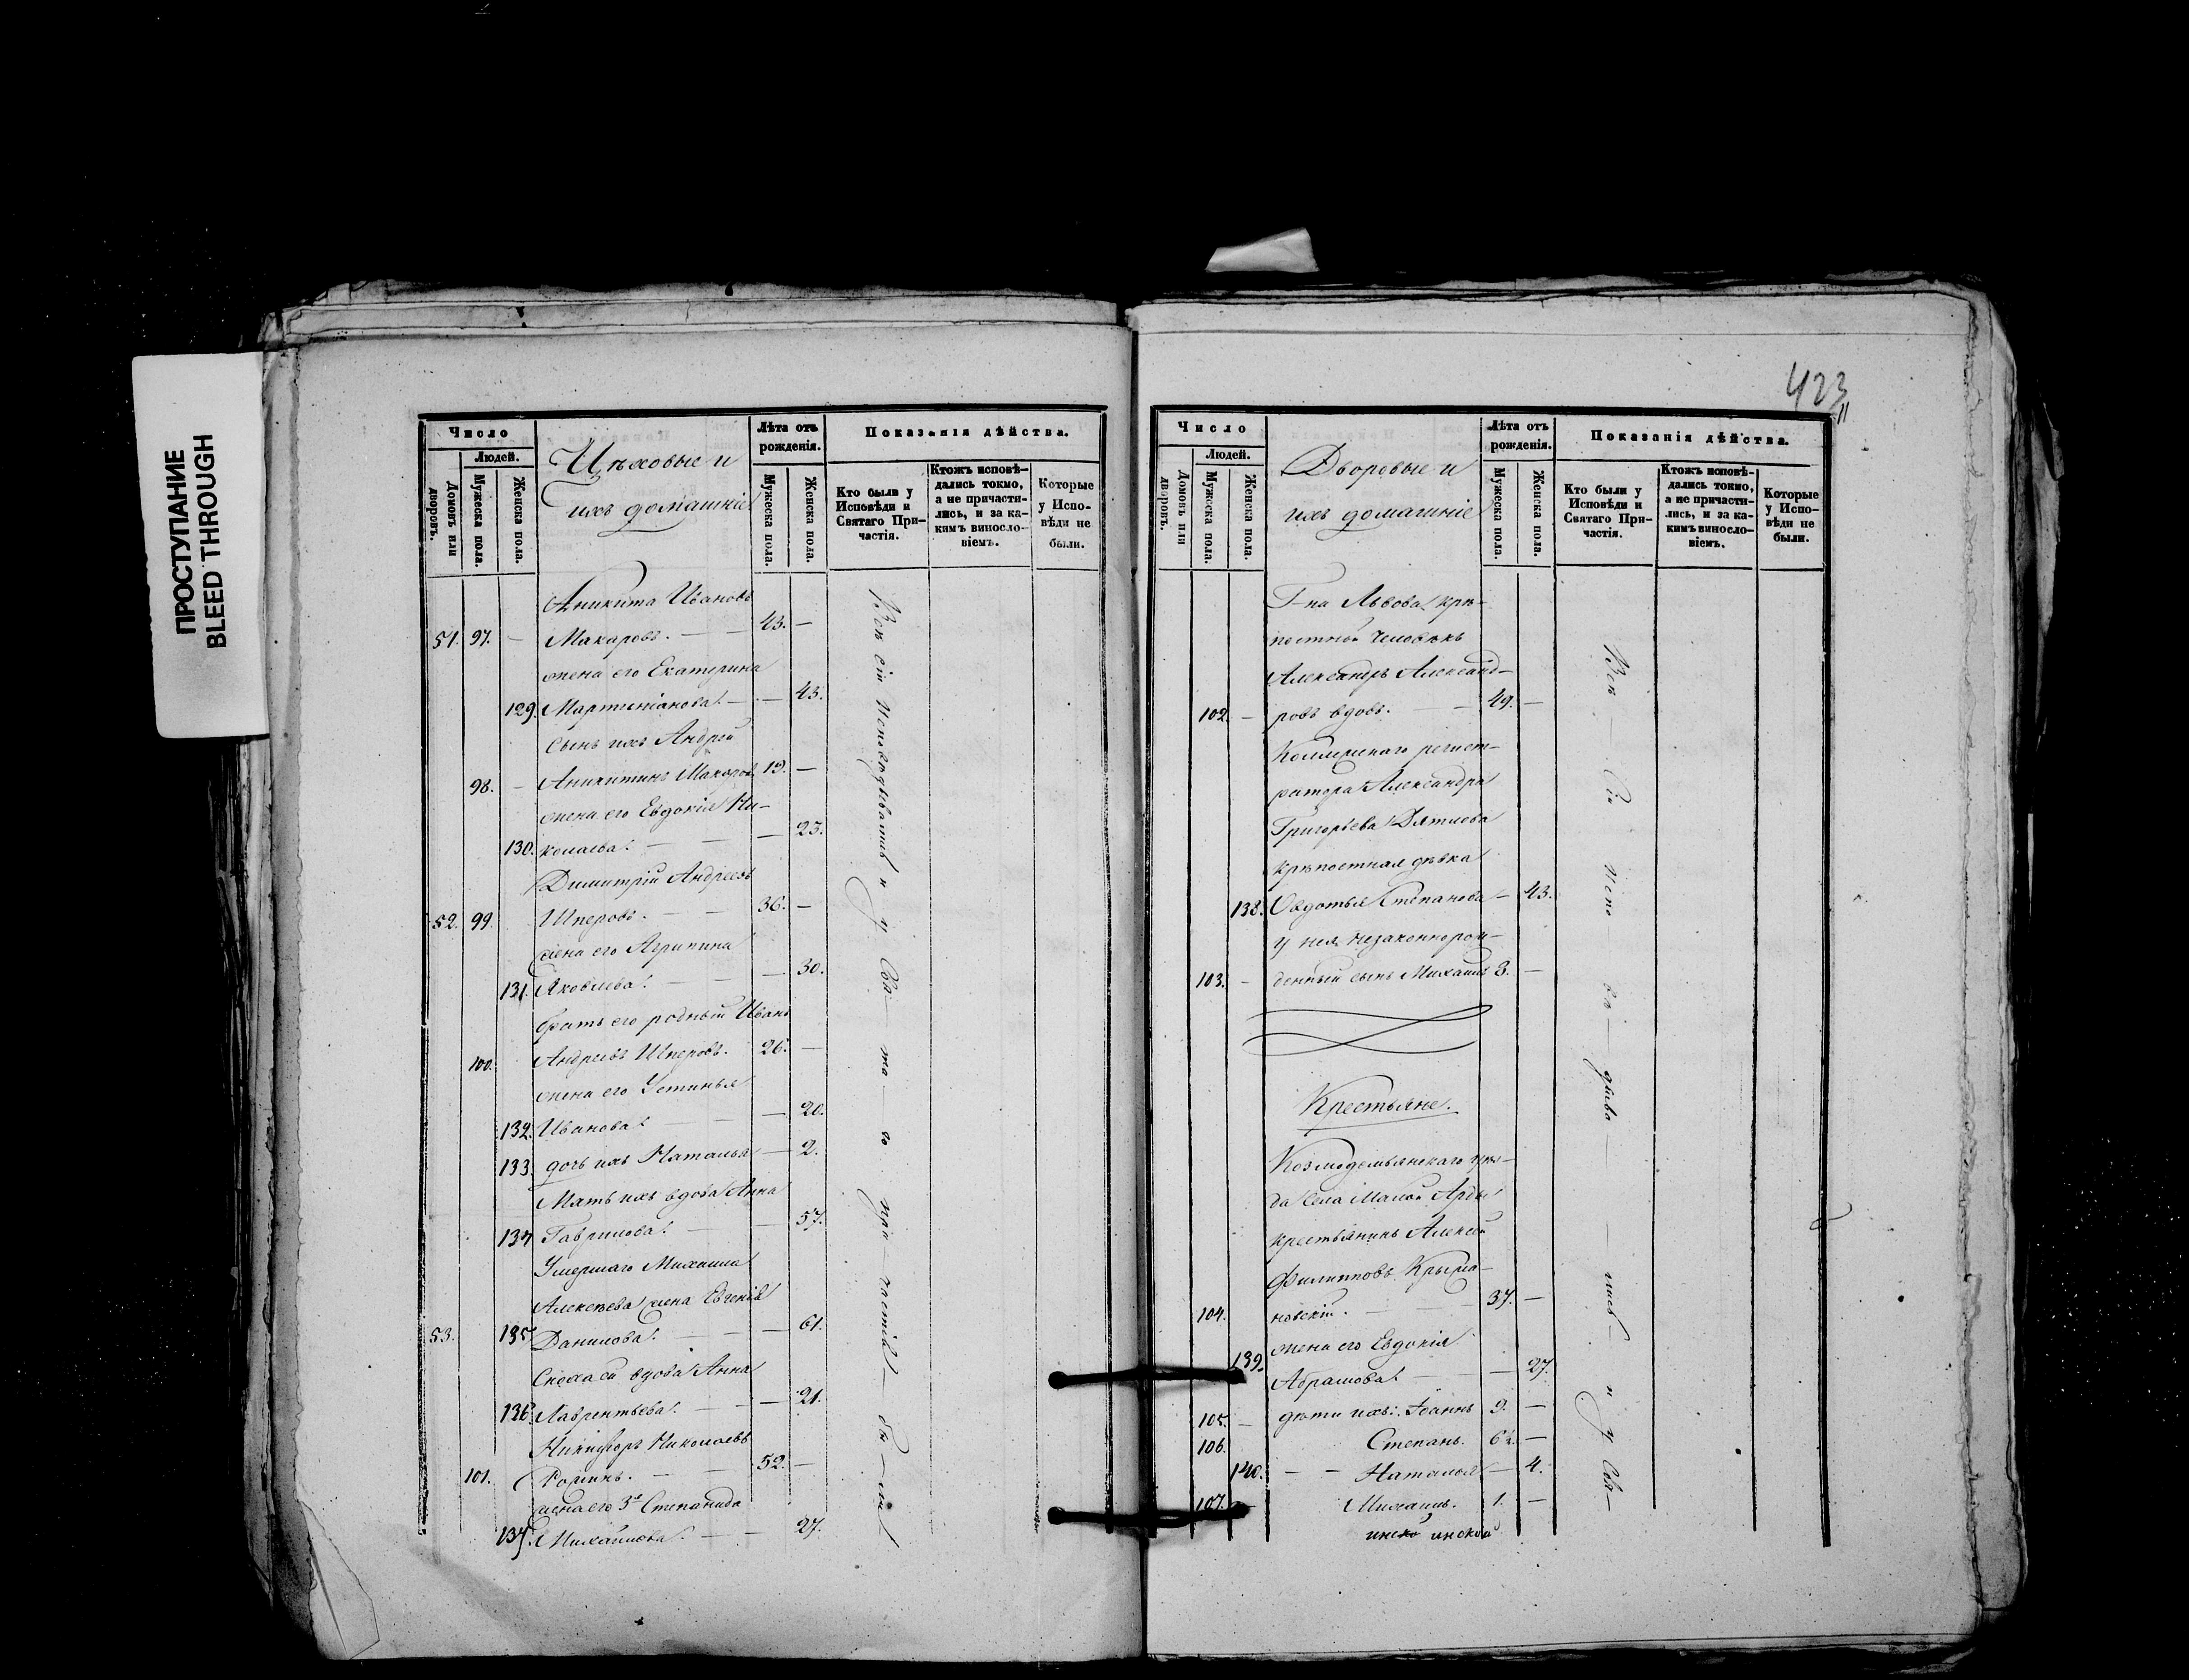 ПРОСТУПАНИЕ
BLEED THROUGH
Число
Людей.
Домовъ или дворовъ.
Мужеска пола.
Женска пола.
Цѣховые и
ихъ домашніе
Лѣта отъ рожденія.
Мужеска пола.
Женска пола.
Показанія дѣйства.
Кто были у Исповѣди и Святаго Причастія.
Ктожъ исповѣдались токмо, а не причастились, и за какимъ винословіемъ.
Которые у Исповѣди не были.
Аникита Ивановъ
51. 97. — Макаровъ. — — 43. —
жена его Екатерина
129. Мартиніанова. — — 43.
сынъ ихъ Андрей
98. — Аникитинъ Макаровъ 19. —
жена его Евдокія Ни-
130. колаева. — — — 23.
Димитрій Андреевъ
52. 99. Шперовъ. — — 36. —
жена его Агрипина
131. Яковлева. — — — 30.
братъ его родный Иванъ
100. Андреевъ Шперовъ. 26. —
жена его Устинья
132. Иванова. — — — 20.
133. дочь ихъ Наталья — 2.
Мать ихъ вдова Анна
134 Гаврилова. — — 57.
Умершаго Михаила
Алексѣева жена Евгенія
53. 135 Данилова. — — — 61.
Сноха ей вдова Анна
136. Лаврентьева. — — — 21.
Никифоръ Николаевъ
101. Роминъ. — — 52. —
жена его 3я Степанида
137. Михайлова. — — 27.
Всѣ сіи исповѣдывались и у Свя-та-го при-частія бы-ли
423
Число
Людей.
Домовъ или дворовъ.
Мужеска пола.
Женска пола.
Дворовые и
ихъ домашніе
Лѣта отъ рожденія.
Мужеска пола.
Женска пола.
Показанія дѣйства.
Кто были у Исповѣди и Святаго Причастія.
Ктожъ исповѣдались токмо, а не причастились, и за какимъ винословіемъ.
Которые у Исповѣди не были.
Г-на Львова крѣ-
постной человѣкъ
Александръ Александ-
102. — ровъ вдовъ. — 49. —
Коллежскаго регист-
ратора Александра
Григорьева Дятлева
крѣпостная дѣвка
138. Овдотья Степанова — 43.
у нея незаконнорож-
103. — денный сынъ Михаилъ 3. —
Крестьяне.
Козмодемьянскаго уѣз-
да села Малой Арды
крестьянинъ Алексѣй
Филипповъ Крыма-
104. новскій. — — 37. —
жена его Евдокія
139. Абрамова. — — 27.
105. — дѣти ихъ: Іоаннъ 9. —
106. Степанъ. 6½. —
140. — — Наталья — 4.
107. — Михаилъ. 1. —
Всѣ — сіи испо — вѣ — дыва — лись — и у Свя —